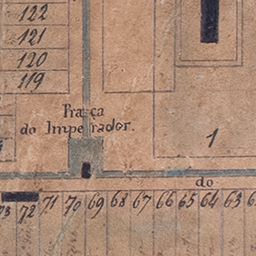 122
121
120
119
Praça
do Imperador.
1
do
73 72 71 70 69 68 67 66 65 64 63